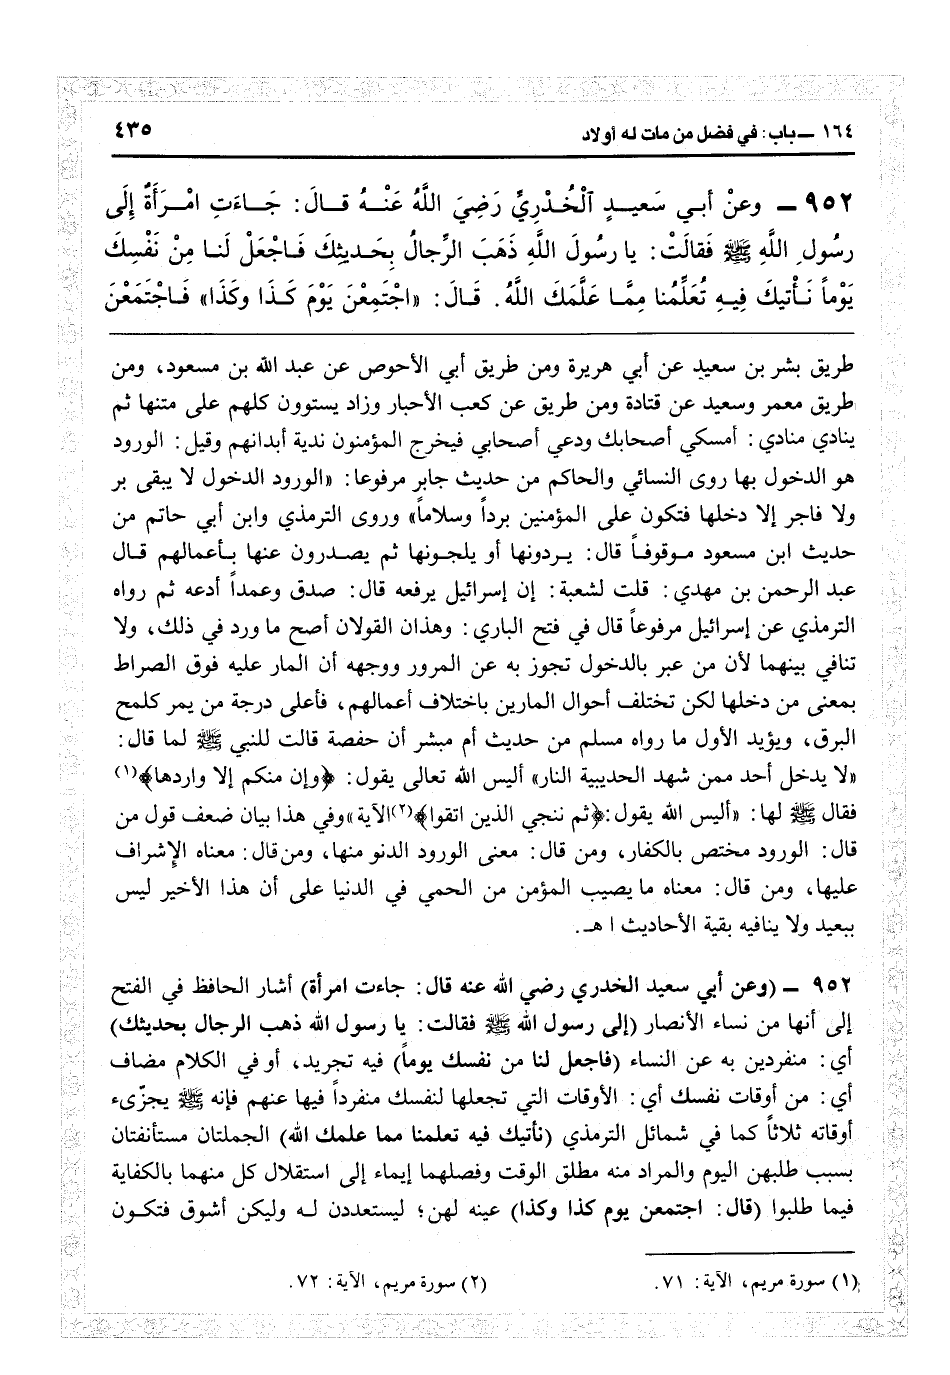 ١٦٤ ــ باب: في فضل من مات له أولاد
٤٣٥
٩٥٢ ــ وعنْ أبي سَعيـدٍ ٱلْخُدْرِيِّ رَضِيَ اللَّهُ عَنْـهُ قـالَ: جَـاءَتِ امْـرَأَةٌ إِلَى
رسُولِ اللَّهِ ﷺ فَقالَتْ: يا رسُولَ اللَّهِ ذَهَبَ الرِّجالُ بِحَديثِكَ فَـاجْعَلْ لَنـا مِنْ نَفْسِكَ
يَوْماً نَـأْتيكَ فِيـهِ تُعَلِّمُنا مِمَّـا عَلَّمَكَ اللَّهُ. قَـالَ: «اجْتَمِعْنَ يَوْمَ كَـذَا وكَذَا» فَـاجْتَمَعْنَ
طريق بشر بن سعيد عن أبي هريرة ومن طريق أبي الأحوص عن عبد الله بن مسعود، ومن
طريق معمر وسعيد عن قتادة ومن طريق عن كعب الأحبار وزاد يستوون كلهم على متنها ثم
ينادي منادي: أمسكي أصحابك ودعي أصحابي فيخرج المؤمنون ندية أبدانهم وقيل: الورود
هو الدخول بها روى النسائي والحاكم من حديث جابر مرفوعا: «الورود الدخول لا يبقى بر
ولا فاجر إلا دخلها فتكون على المؤمنين برداً وسلاماً» وروى الترمذي وابن أبي حاتم من
حديث ابن مسعود مـوقوفـاً قال: يـردونها أو يلجـونها ثم يصـدرون عنها بـأعمالهم قـال
عبد الرحمن بن مهدي: قلت لشعبة: إن إسرائيل يرفعه قال: صدق وعمداً أدعه ثم رواه
الترمذي عن إسرائيل مرفوعاً قال في فتح الباري: وهذان القولان أصح ما ورد في ذلك، ولا
تنافي بينهما لأن من عبر بالدخول تجوز به عن المرور ووجهه أن المار عليه فوق الصراط
بمعنى من دخلها لكن تختلف أحوال المارين باختلاف أعمالهم، فأعلى درجة من يمر كلمح
البرق، ويؤيد الأول ما رواه مسلم من حديث أم مبشر أن حفصة قالت للنبي ﷺ لما قال:
«لا يدخل أحد ممن شهد الحديبية النار» أليس الله تعالى يقول: ﴿وإن منكم إلا واردها﴾(١)
فقال ﷺ لها: «أليس الله يقول:﴿ثم ننجي الذين اتقوا﴾(٢)الآية»وفي هذا بيان ضعف قول من
قال: الورود مختص بالكفار، ومن قال: معنى الورود الدنو منها، ومن قال: معناه الإشراف
عليها، ومن قال: معناه ما يصيب المؤمن من الحمي في الدنيا على أن هذا الأخير ليس
ببعيد ولا ينافيه بقية الأحاديث ا هـ.
٩٥٢ ــ (وعن أبي سعيد الخدري رضي الله عنه قال: جاءت امرأة) أشار الحافظ في الفتح
إلى أنها من نساء الأنصار (إلى رسول الله ﷺ فقالت: يا رسول الله ذهب الرجال بحديثك)
أي: منفردين به عن النساء (فاجعل لنا من نفسك يوماً) فيه تجريد، أو في الكلام مضاف
أي: من أوقات نفسك أي: الأوقات التي تجعلها لنفسك منفرداً فيها عنهم فإنه ﷺ يجزّىء
أوقاته ثلاثاً كما في شمائل الترمذي (نأتيك فيه تعلمنا مما علمك الله) الجملتان مستأنفتان
بسبب طلبهن اليوم والمراد منه مطلق الوقت وفصلهما إيماء إلى استقلال كل منهما بالكفاية
فيما طلبوا (قال: اجتمعن يوم كذا وكذا) عينه لهن؛ ليستعددن لـه وليكن أشوق فتكـون
(١) سورة مريم، الآية: ٧١.
(٢) سورة مريم، الآية: ٧٢.